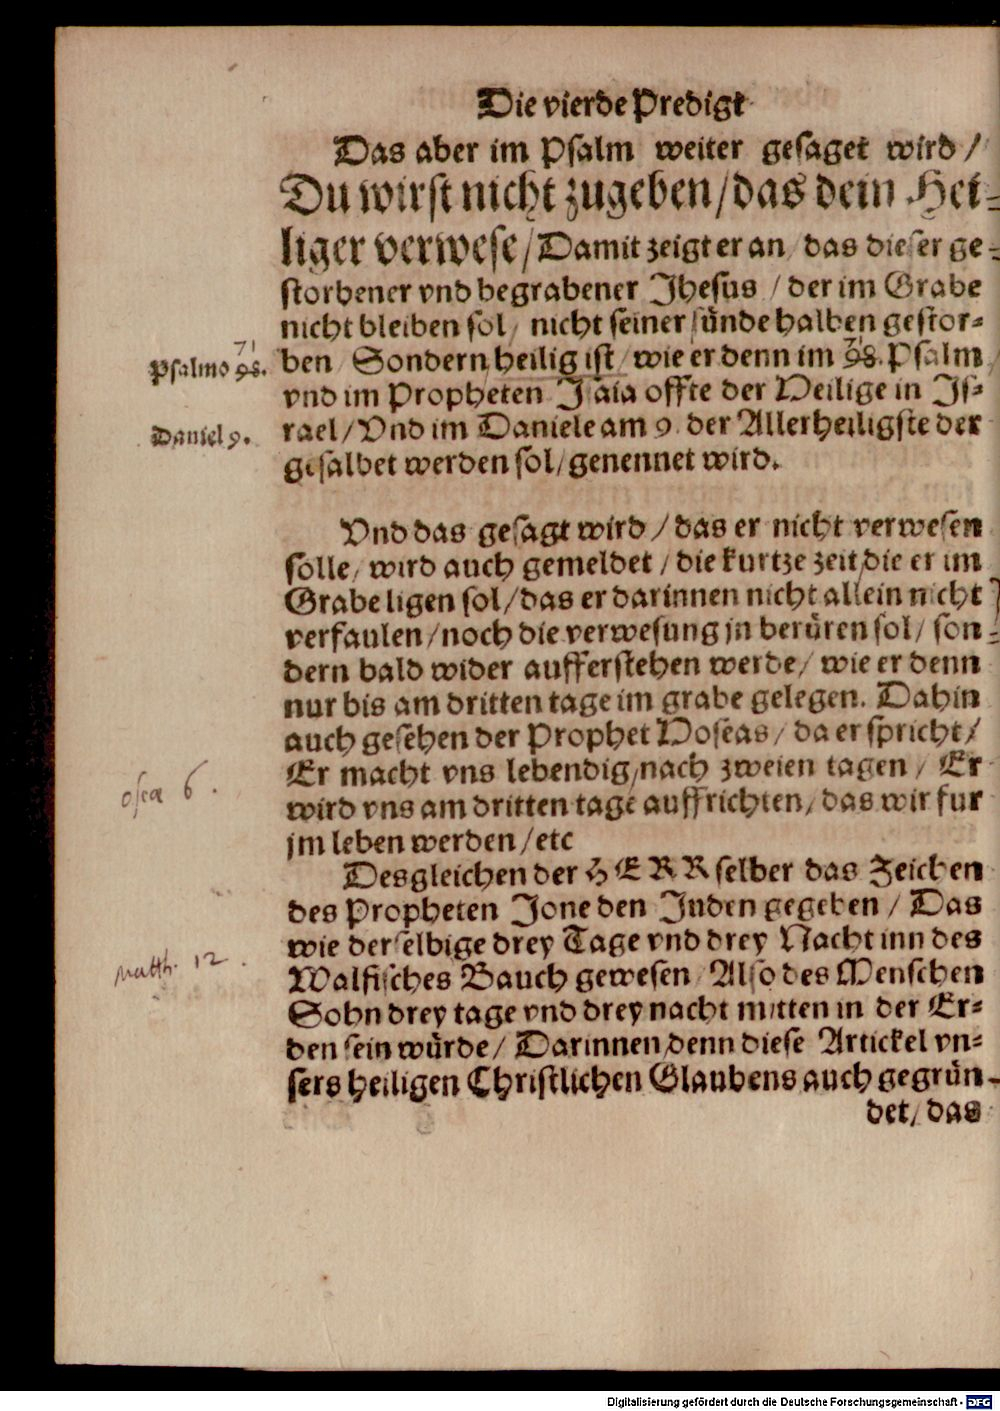 Die vierde Predigt
Das aber im Psalm weiter gesaget wird /
Du wirst nicht zugeben / das dein Hei-
liger verwese / Damit zeigt er an / das dieser ge-
storbener vnd begrabener Jhesus / der im Grabe
nicht bleiben sol / nicht seiner sünde halben gestor-
71
Psalmo 98.
ben / Sondern heilig ist / wie er denn im 98. Psalm /
71
vnd im Propheten Jsaia offte der Heilige in Js-
Daniel 9.
rael / Vnd im Daniele am 9. der Allerheiligste der
gesalbet werden sol / genennet wird.
Vnd das gesagt wird / das er nicht verwesen
solle / wird auch gemeldet / die kurtze zeit / die er im
Grabe ligen sol / das er darinnen nicht allein nicht
verfaulen / noch die verwesung jn berüren sol / son-
dern bald wider aufferstehen werde / wie er denn
nur bis am dritten tage im grabe gelegen. Dahin
auch gesehen der Prophet Hoseas / da er spricht /
osea 6.
Er macht vns lebendig / nach zweien tagen / Er
wird vns am dritten tage auffrichten / das wir fur
jm leben werden / etc
Desgleichen der HERR selber das Zeichen
des Propheten Jone den Jüden gegeben / Das
wie derselbige drey Tage vnd drey Nacht inn des
matth. 12.
Walfisches Bauch gewesen / Also des Menschen
Sohn drey tage vnd drey nacht mitten in der Er-
den sein würde / Darinnen denn diese Artickel vn-
sers heiligen Christlichen Glaubens auch gegrün-
det / das
Digitalisierung gefördert durch die Deutsche Forschungsgemeinschaft - DFG